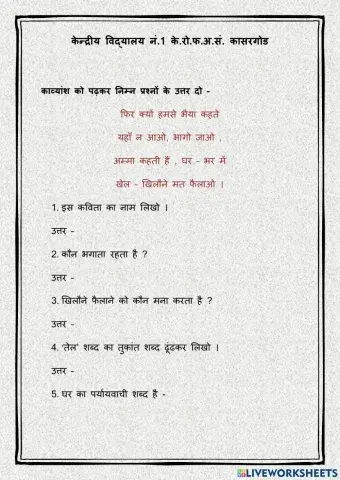 केन्द्रीय विद्यालय नं.1 के.रो.फ.अ.सं. कासरगोड
काव्यांश को पढ़कर निम्न प्रश्नों के उत्तर दो -
फिर क्यों हमसे भैया कहते
यहाँ न आओ, भागो जाओ ,
अम्मा कहती हैं , घर - भर में
खेल - खिलौने मत फैलाओ ।
1. इस कविता का नाम लिखो ।
उत्तर -
2. कौन भगाता रहता है ?
उत्तर -
3. खिलौने फैलाने को कौन मना करता है ?
उत्तर -
4. 'तेल' शब्द का तुकांत शब्द ढूंढकर लिखो ।
उत्तर -
5. घर का पर्यायवाची शब्द है -
LIVEWORKSHEETS